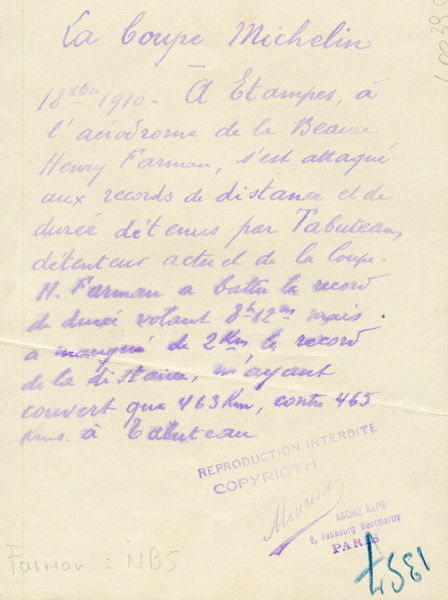 La Coupe Michelin
18 xbre 1910. A Etampes, à
l'aérodrome de la Beauce
Henry Farman, s'est attaqué
aux records de distance et de
durée détenus par Tabuteau,
détenteur actuel de la Coupe.
H. Farman a battu le record
de durée volant 8h 12m mais
a manqué de 2 Km le record
de la distance, n'ayant
couvert que 463 Km, contre 465
Kms. à Tabuteau
REPRODUCTION INTERDITE
COPYRIGTH
Meurisse
AGENCE RAPID
Faubourg Montmartre
PARIS
Farman : NB5